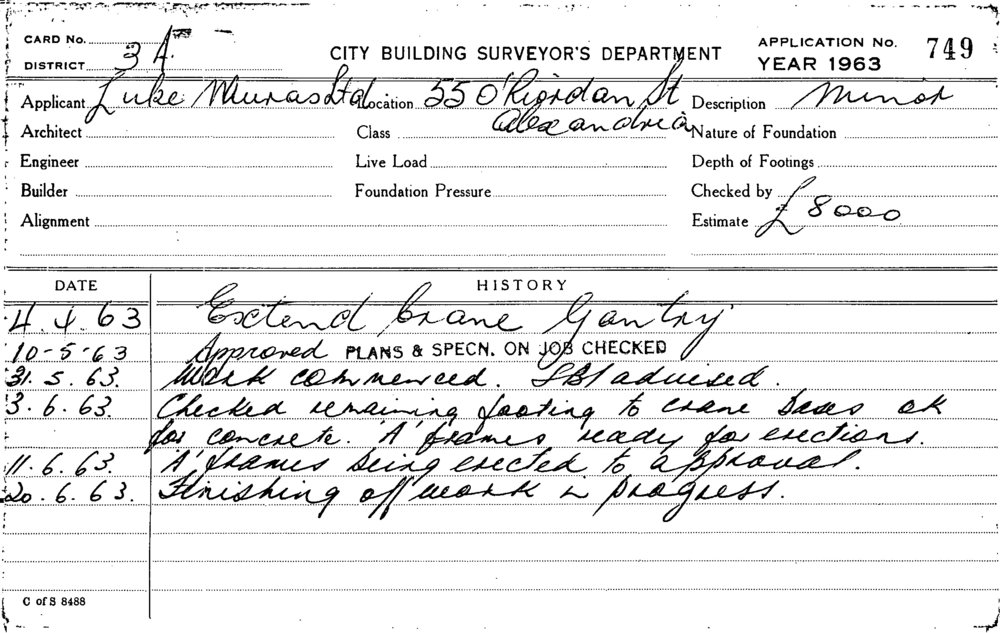 CARD No.
DISTRICT 3A
CITY BUILDING SURVEYOR'S DEPARTMENT
APPLICATION No. 749
YEAR 1963
Applicant Luke Muras Ltd Location 55 O'Riordan St Description Minor
Alexandria
Architect Class Nature of Foundation
Engineer Live Load Depth of Footings
Builder Foundation Pressure Checked by
Alignment Estimate £8000
DATE HISTORY
4.4.63 Extend Crane Gantry
10-5-63 Approved PLANS & SPECN. ON JOB CHECKED
31.5.63. Work commenced. advised.
3.6.63. Checked remaining footing to crane bases ok
for concrete. 'A' frames ready for erections.
11.6.63. 'A' frames being erected to approval.
20.6.63. Finishing off work in progress.
C of S 8488